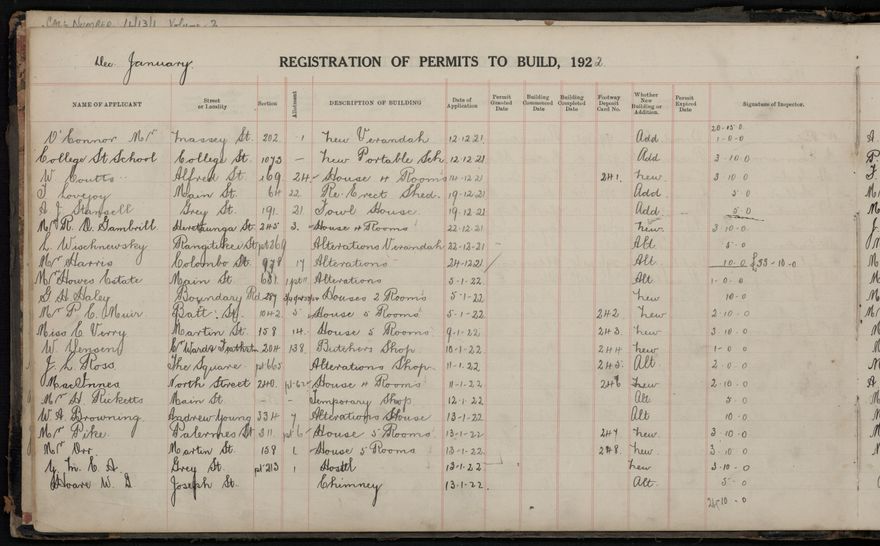 CALL NUMBER 1/13/1 Volume 2
Dec. January.
REGISTRATION OF PERMITS TO BUILD, 1922
NAME OF APPLICANT Street or Locality Section Allotment DESCRIPTION OF BUILDING Date of Application Permit Granted Date Building Commenced Date Building Completed Date Footway Deposit Card No. Whether New Building or Addition. Permit Expired Date Signature of Inspector.
20-15-0
O'Connor Mr Massey St. 202 1 New Verandah 12-12-21 Add 1-0-0
College St School College St. 1073 — New Portable Sch 12-12-21 Add 3-10-0
W Coutts Alfred St. 169 24 House 4 Rooms 14-12-21 241. New 3 10 0
T Lovejoy Main St. 64 22 Re. Erect Shed. 19-12-21 Add. 5-0
A J Stansell Grey St. 191. 21 Fowl House 19-12-21 Add 5-0
Mr R. O. Gambrill Heretaunga St. 245 3. House 4 Rooms 22-12-21 New. 3 10-0
L Wischnewsky Rangitikei St pt 269 Alterations Verandah 22-12-21 Alt 5-0
Mr Harris Colombo St. 978 17 Alterations 24-12-21 Alt. 10-0 £33-10-0
Mr Howes Estate Main St. 681. Alterations 5-1-22 Alt 1-0-0
G H Haley Boundary Rd 287 Houses 2 Rooms 5-1-22 New 10-0
Mr P. C. Muir Batt: St. 1042 5 House 5 Rooms 5-1-22 242 New 2-10-0
Miss E Verry Martin St. 158 14. House 5 Rooms 9-1-22 243. New 3-10-0
W Yensen 204 138 Butchers Shop 10-1-22 244 New 1-0-0
J L Ross The Square pt 665 Alterations Shop 11-1-22 245. Alt. 2-0-0
MacInnes North Street 240. House 4 Rooms 11-1-22 246 New 2-10-0
Mr H Ricketts Main St. - - Temporary Shop 12-1-22 Alt 5-0
W A Browning Andrew Young 334 7 Alterations House 13-1-22 Alt 10-0
Mr Pike Palermos St 311 pt 6 House 5 Rooms 13-1-22 247 New. 3-10-0
Mr Orr. Martin St. 158 1 House 5 Rooms 13-1-22 248. New. 3-10-0
Y. M. C. A Grey St. pt 213 1 Hostel 13-1-22 New 3-10-0
Hoare W. G Joseph St. Chimney 13-1-22. Alt. 5-0